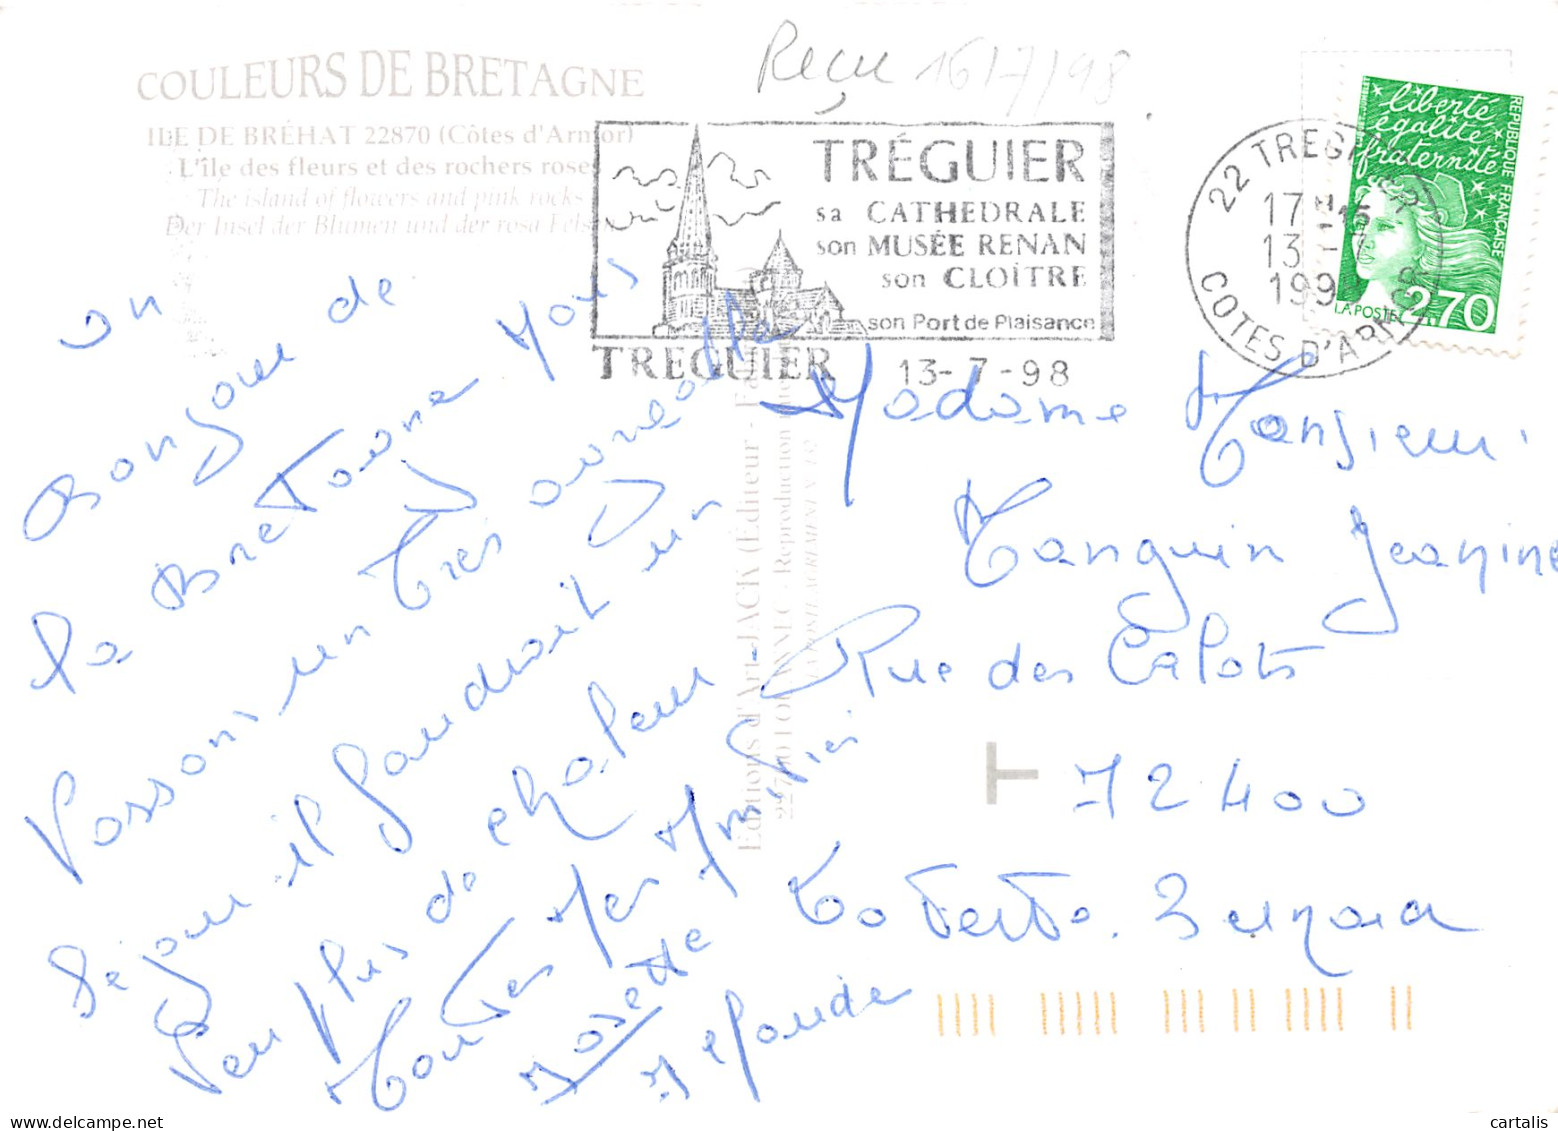 Reçu 16/7/98
COULEURS DE BRETAGNE
ILE DE BRÉHAT 22870 (Côtes d'Armor)
L'île des fleurs et des rochers roses
The island of flowers and pink rocks
Der Insel der Blumen und der rosa Felsen
TRÉGUIER
sa CATHEDRALE
son MUSÉE RENAN
son CLOÎTRE
son Port de Plaisance
TREGUIER 13-7-98
22 TREGUIER
17 H 15
13 -7
1998
COTES D'ARMOR
liberté
égalité
fraternité
REPUBLIQUE FRANÇAISE
LA POSTE 2,70
un
Bonjour de
la Bretagne Nous
Passons un très agréable
Séjour il faudrait un
Peu plus de chaleur
Toutes Mes Amitiés
Josette
Madame Monsieur
Tanguin Jeanine
Rue des Calots
72400
La Ferté. Bernard
Editions d'Art JACK (Éditeur
Reproduction
T
cartalis